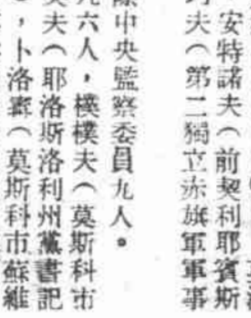 安特諾夫（前契利耶賓斯
夫（第二獨立赤旗軍軍事
際中央監察委員九人。
九六人，樸樸夫（莫斯科市
夫（耶洛斯洛利州黨書記
，卜洛寗（莫斯科市蘇維